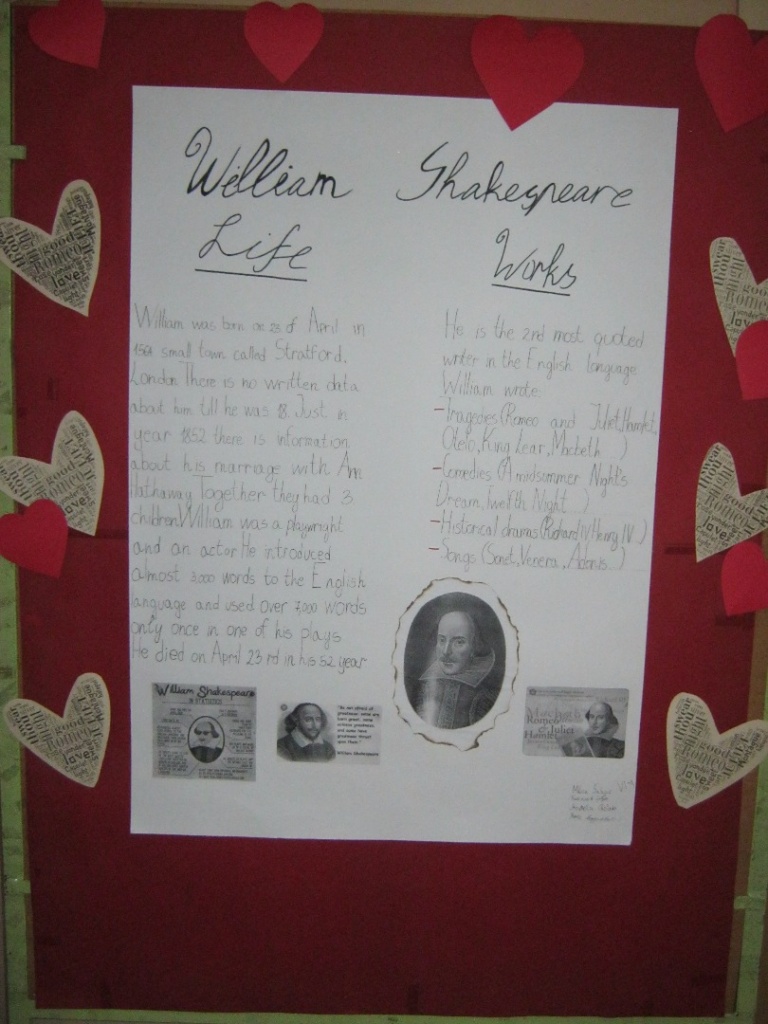 William Shakespeare
Life
William was born on 23 of April in
1564 small town called Stratford,
London There is no written data
about him till he was 18. Just in
year 1852 there is information
about his marriage with Ann
Hathaway Together they had 3
children. William was a playwright
and an actor. He introduced
almost 3.000 words to the English
language and used over 7,000 words
only once in one of his plays
He died on April 23 rd in his 52 year
Works
He is the 2nd most quoted
writer in the English language
William wrote:
-Tragedies (Romeo and Juliet, Hamlet,
Otelo, King Lear, Macbeth...)
-Comedies (A midsummer Night's
Dream, Twelfth Night...)
-Historical dramas (Richard IV, Henry IV...)
-Songs (Sonet, Venera, Adonis...)
William Shakespeare
IN STATISTICS
"Be not afraid of
greatness: some are
born great, some
achieve greatness
and some have
greatness thrust
upon them."
William Shakespeare
Macbeth
Romeo
& Juliet
Hamlet
good
Romeo
love
JULIET
thou